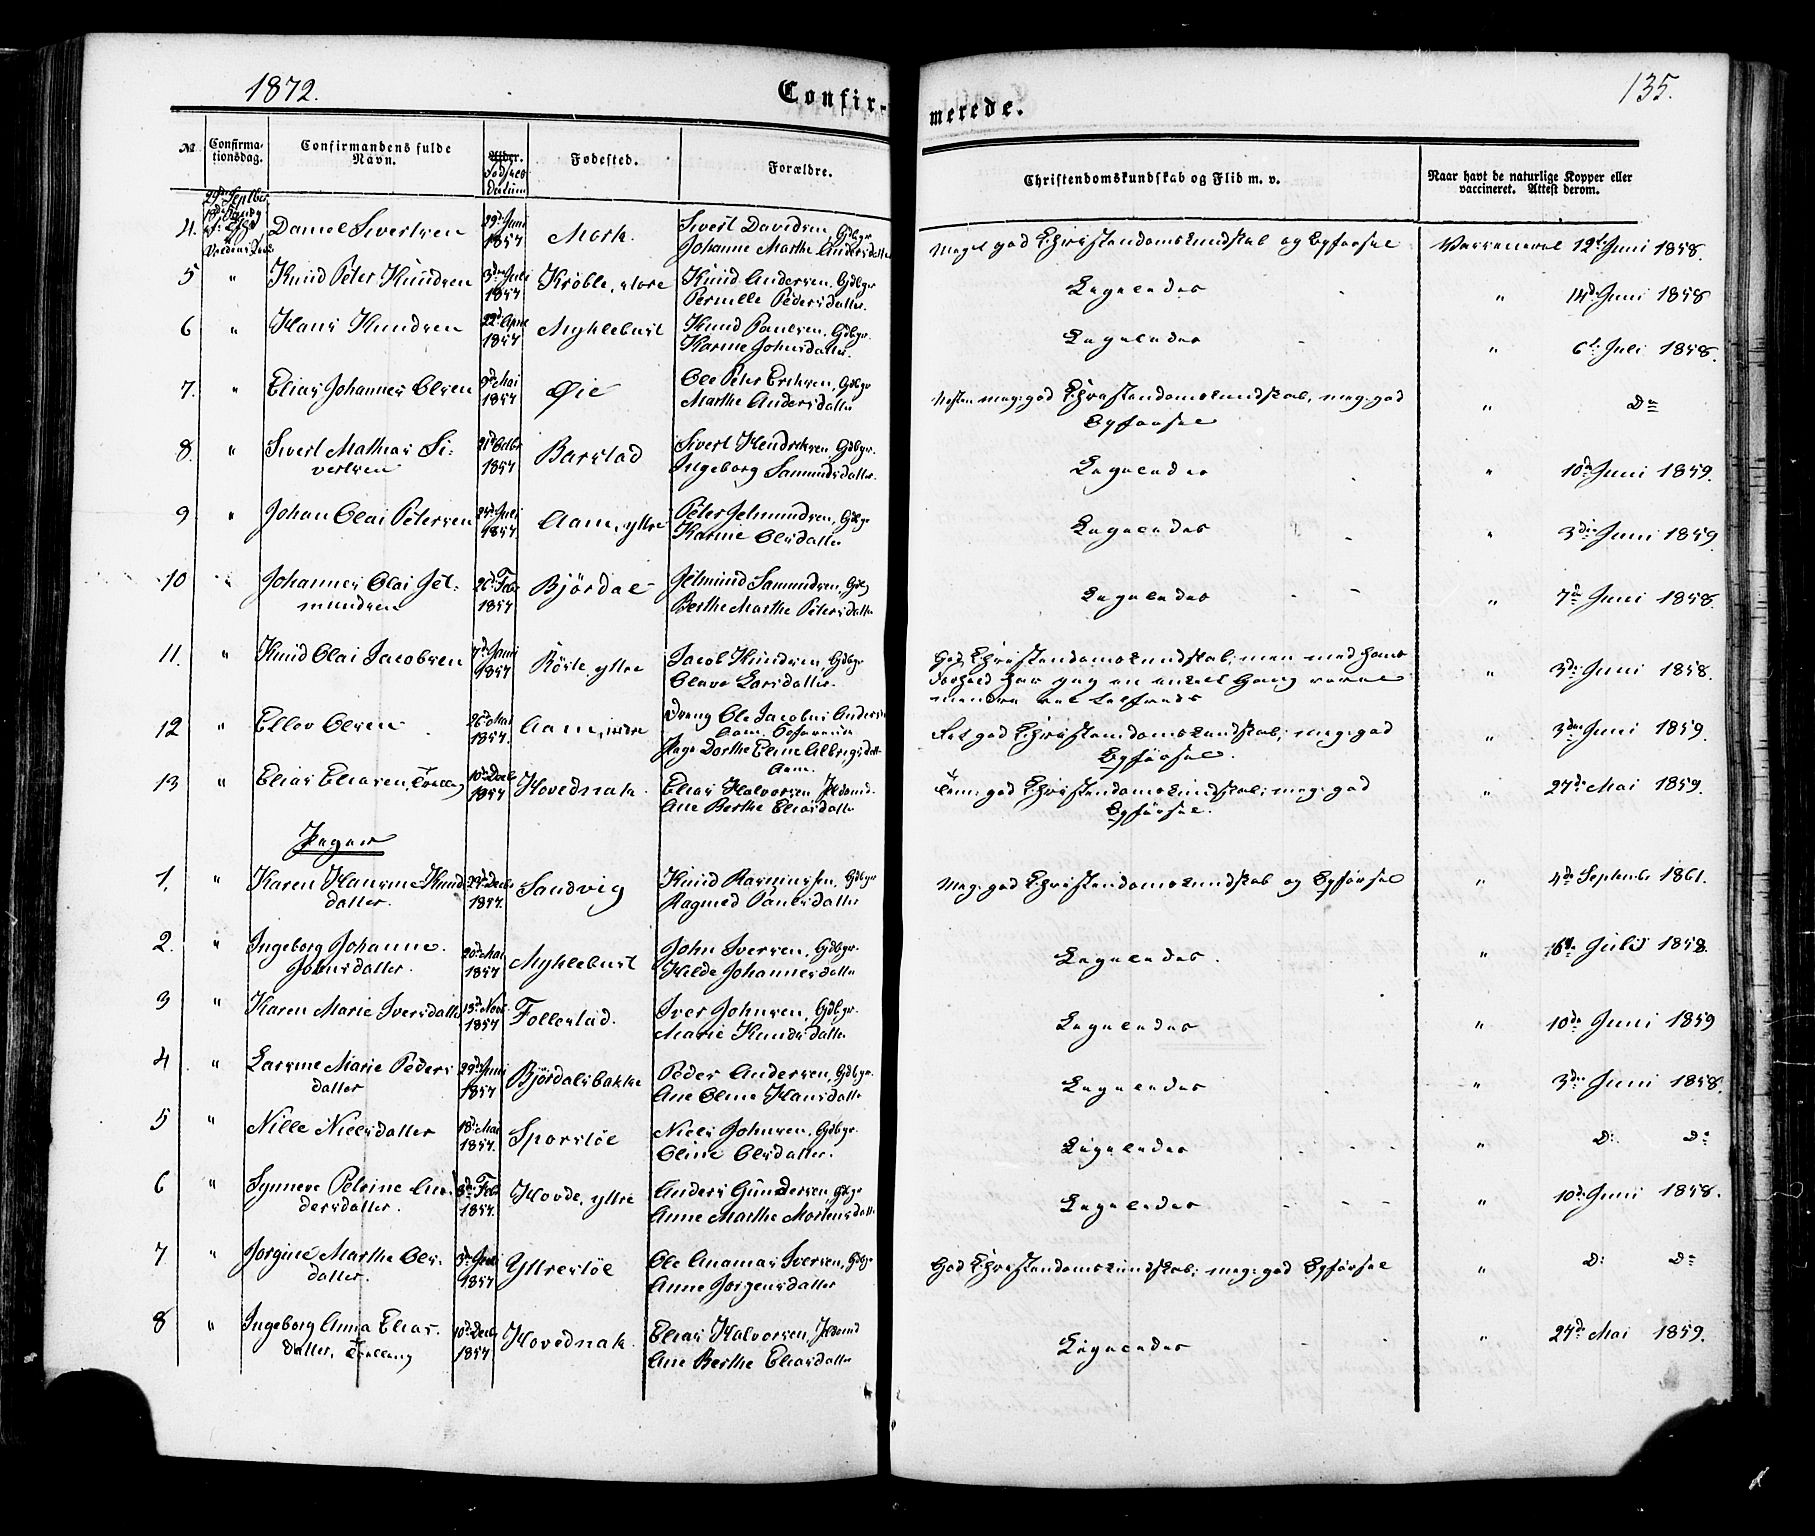 1872.
Confir-
merede.
135.
No.
Confirma-
tionsdag.
Confirmandens fulde
Navn.
Alder.
Fødsels
Datum
Fødested.
Forældre.
Christendomskundskab og Flid m. v.
Naar havt de naturlige Kopper eller
vaccineret. Attest derom.
4. Daniel Sivertsen 29d Juni 1857 Mork. Sivert Davidsen, Gdbgr. Johanne Marthe Andersdatter Meget god Christendomskundskab og Opførsel Vaccineret 12te Juni 1858.
5 " Knud Peter Knudsen 3die Juli 1857 Krøble, store Knud Andersen, Gdbgr Pernille Pedersdatter. Ligeledes " 14de Juni 1858
6 " Hans Knudsen 22d April 1857 Myklebust Knud Paulsen, Gdbgr. Karine Johnsdatter. Ligeledes " 6te Juli 1858.
7. " Elias Johannes Olsen 9d Mai 1857 Øie Ole Peter Eriksen, Gdbgr Marthe Andersdatter Næsten meg: god Christendomskundskab, meg: god Opførsel " Do
8. " Sivert Mathias Si-
vertsen 21d Octbr 1857 Barstad Sivert Hendriksen, Gdbgr. Ingeborg Samundsdatter. Ligeledes " 10de Juni 1859.
9 " Johan Olai Petersen 24d Juli 1857. Aam, ytre Peter Jetmundsen, Gdbgr Karine Olsdatter Ligeledes " 3die Juni 1859.
10 " Johannes Olai Jet-
mundsen 26d Feb 1857 Bjørdal Jetmund Samundsen, Gdbg Berthe Marthe Petersdatter Ligeledes " 7de Juni 1858.
11. " Knud Olai Jacobsen 7d Juni 1857 Røsle, ytre Jacob Knudsen, Gdbgr Olave Larsdatter. God Christendomskundskab; men med Hans
Forhold har jeg en enkelt Gang været
mindre vel tilfreds " 3die Juni 1858.
12 " Ellev Olsen 26d Mai 1857. Aam, indre Dreng Ole Jacobus Anders
Aam. Besovende
Pige Dorthe Eline Albrigtsdatter
Aam. Ret god Christendomskundskab; meg: god
Opførsel. " 3die Juni 1859.
13 " Elias Eliasen, Tvilling 10d Decbr 1857 Hovednak. Elias Halvorsen, Ane Berthe Eliasdatter Tem: god Christendomskundskab; meg: god
Opførsel. " 27de Mai 1859.
Piger
1. " Karen Hansine Knuds
datter. 29d Decbr 1857. Sandvig Knud Rasmussen, Gdbgr Ragnild Paulsdatter Meg: god Christendomskundskab og Opførsel " 4de Septemb 1861.
2. " Ingeborg Johanne
Johnsdatter. 20d Mai 1857 Myklebust John Iversen, Gdbgr. Hilde Johannesdatter Ligeledes. " 16de Juli 1858.
3 " Karen Marie Iversdatter 13d Novb 1857 Follestad. Iver Johnsen, Gdbgr. Marie Knudsdatter Ligeledes " 10de Juni 1859
4 " Larsine Marie Peders
datter 29d Juni 1857 Bjørdalsbakke Peder Andersen, Gdbgr. Ane Oline Hansdatter Ligeledes " 3die Juni 1858.
5 " Nille Nielsdatter 18d Mai 1857. Sporstøl Niels Johnsen, Gdbgr. Oline Olsdatter. Ligeledes " Do Do
6 " Synneve Petrine An-
dersdatter. 8de Feb 1857. Hovde, ytre Anders Gundersen, Gdbgr Anne Marthe Mortensdatter Ligeledes " 10de Juni 1858.
7 " Jorgine Marthe Ols-
datter. 3die 1857 Yttrestøl Ole Ananias Iversen, Gdbgr Anne Jørgensdatter God Christendomskundskab; meg: god Opførsel " Do Do
8 " Ingeborg Anna Elias-
datter, Tvilling 10d Decbr 1857 Hovednak Elias Halvorsen, Ane Berthe Eliasdatter Ligeledes " 27de Mai 1859.